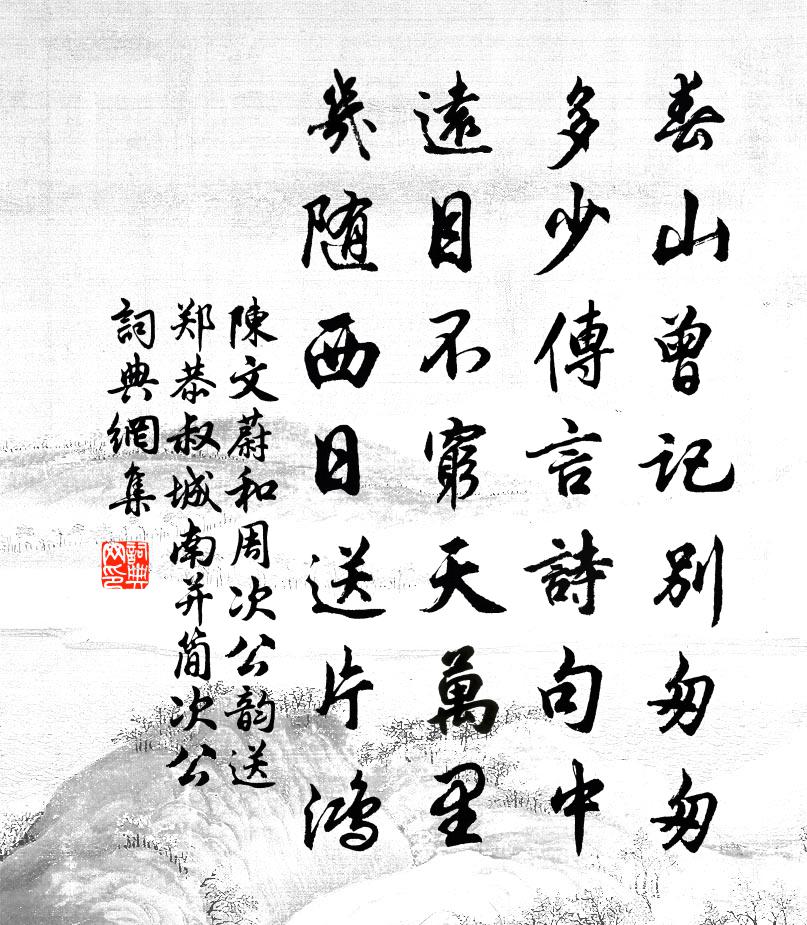 春山曾记别匆匆
多少傳言詩句中
遠目不窮天萬里
幾随西日送片鴻
陳文蔚和周次公韵送
郑恭叔城南并简次公
詞典網集
詞典
网印